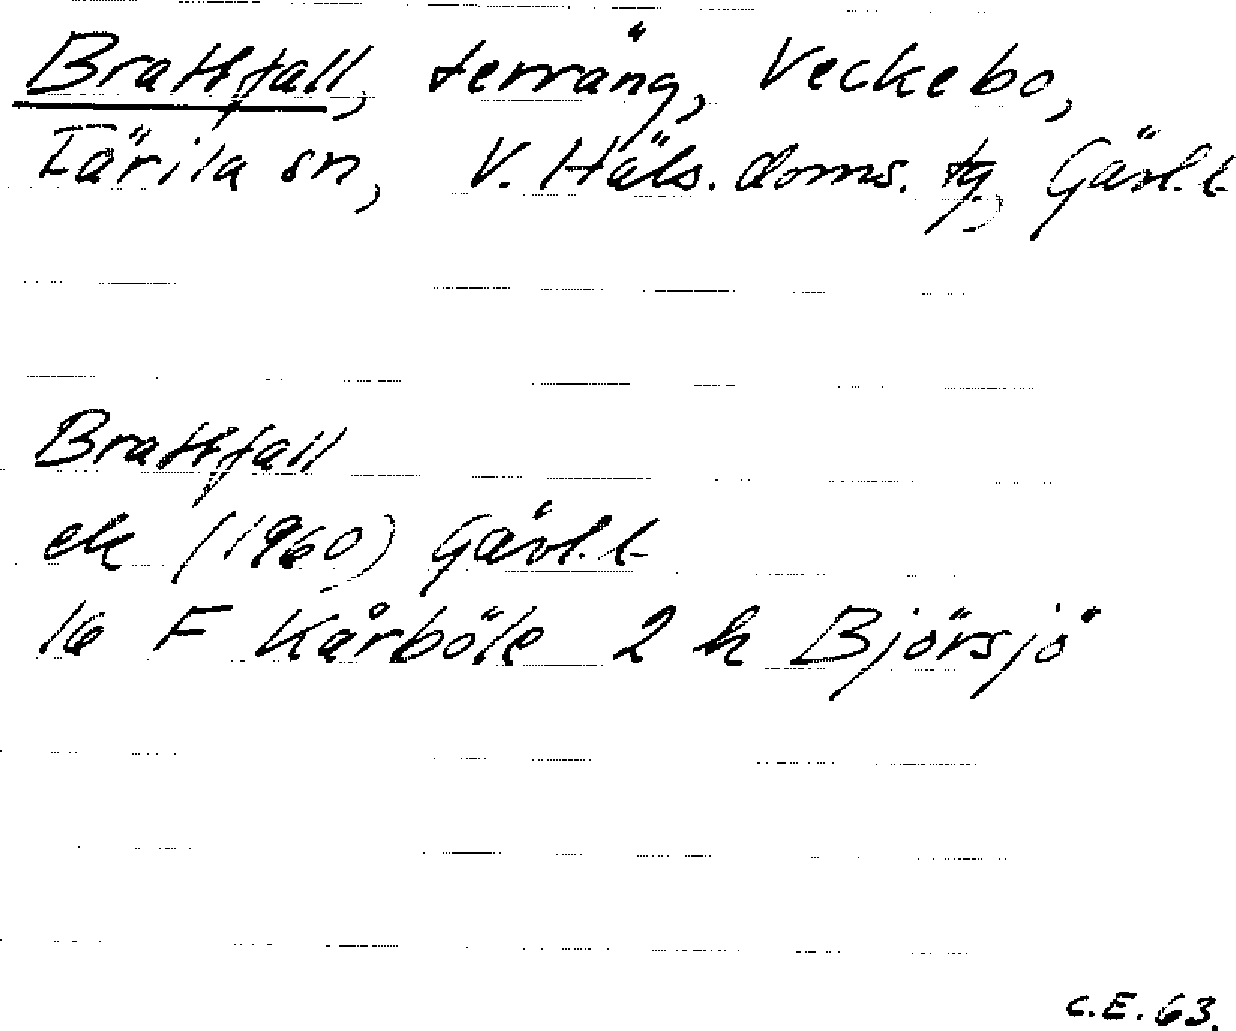 Brattfall, terräng, Veckebo,
Färila sn, V. Häls. doms. tg, Gävl. l.
Brattfall
ek (1960) Gävl. l.
16 F Kårböle 2 h Björsjö
C.E. 63.